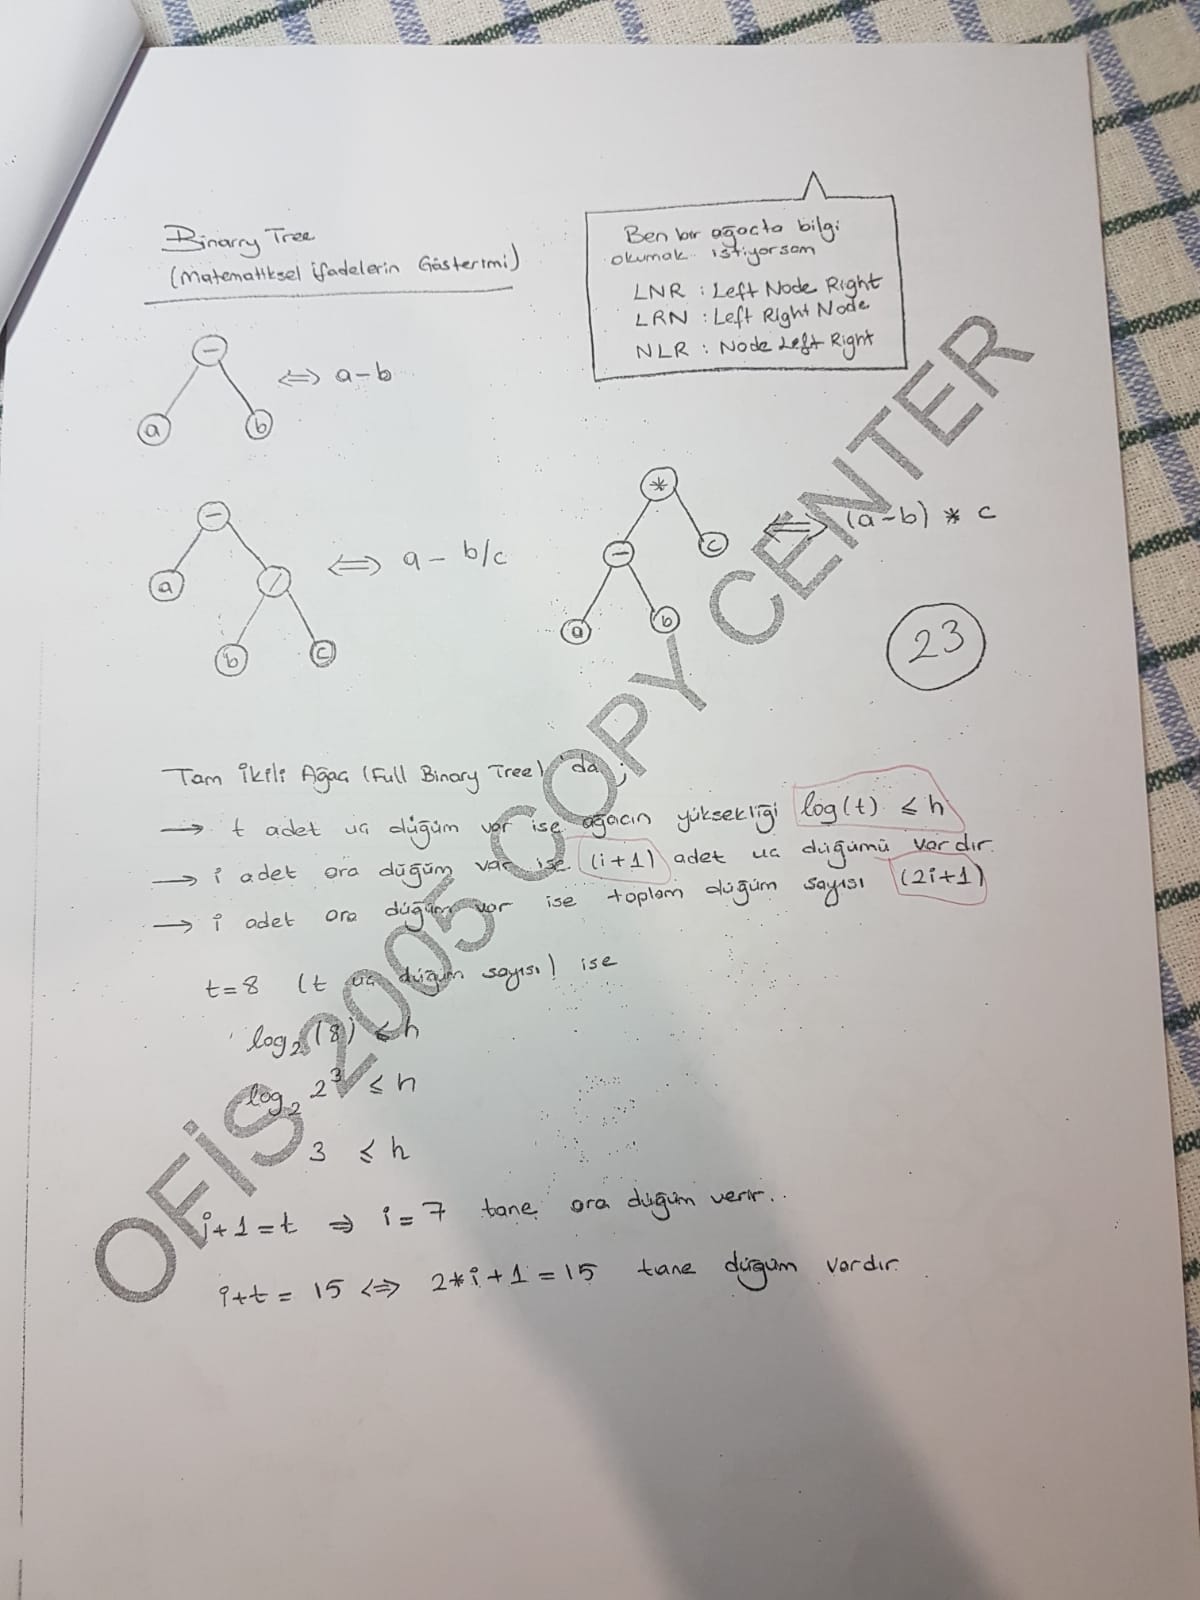 Binarry Tree
(Matematiksel ifadelerin Gösterimi)
Ben bir ağaçta bilgi
okumak istiyorsam
LNR : Left Node Right
LRN : Left Right Node
NLR : Node Left Right
−
a b
⇔ a-b
−
a /
b c
⇔ a - b/c
*
− c
a b
⇔ (a-b) * c
23
Tam İkili Ağaç (Full Binary Tree) 'da ;
→ t adet uç düğüm var ise ağacın yüksekliği log(t) ≤ h
→ i adet ara düğüm var ise (i+1) adet uç düğümü vardır.
→ i adet ara düğüm var ise toplam düğüm sayısı (2i+1)
t=8 (t uç düğüm sayısı) ise
log₂(8) ≤ h
log₂ 2³ ≤ h
3 ≤ h
i+1=t ⇒ i=7 tane ara düğüm verir..
i+t = 15 ⇔ 2*i+1=15 tane düğüm vardır.
OFİS 2005 COPY CENTER